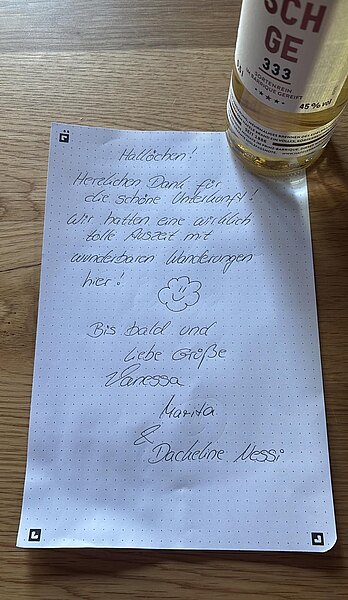 SCH
GE
333
SORTENREIN
IM BARRIQUE GEREIFT
45 % vol
Hallöchen!
Herzlichen Dank für
die schöne Unterkunft!
Wir hatten eine wirklich
tolle Auszeit mit
wunderbaren Wanderungen
hier!
Bis bald und
liebe Grüße
Vanessa
Marita
&
Dacheline Nessi